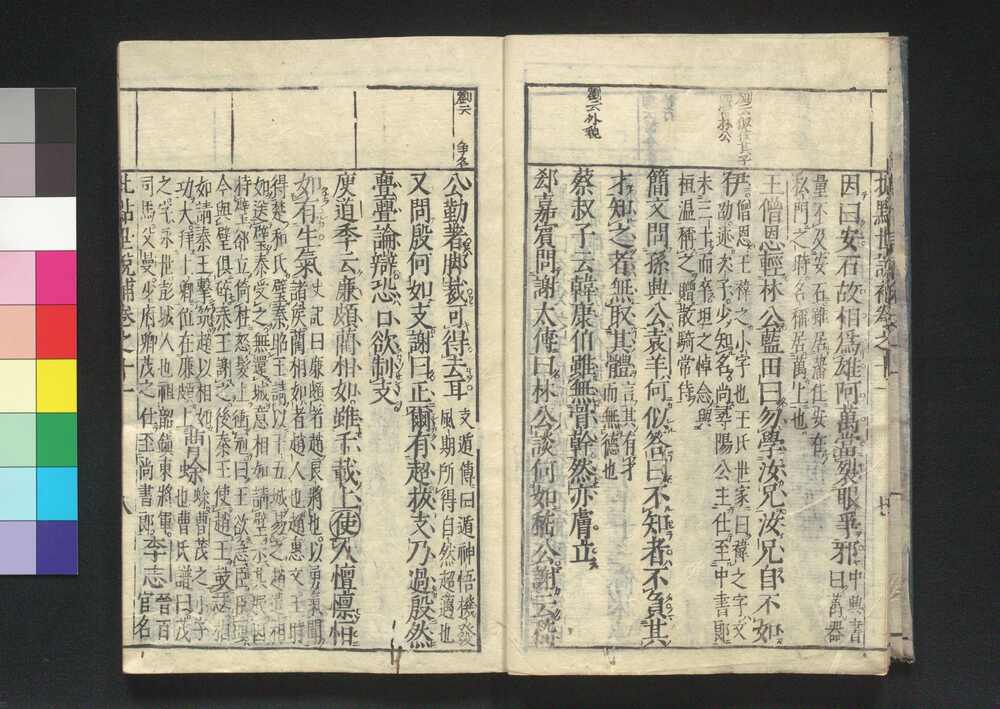 劉云外貌
因曰安石故相爲雄阿萬當裂眼爭邪
中興書曰萬器
量不及安石雖居藩任安在
私門之時名稱居萬上也
王僧恩輕林公藍田曰勿學汝兄汝兄自不如
伊
僧恩王禕之小字也王氏世家曰禕之字文
劭述次子少知名尚尋陽公主仕至中書郎
未三十而卒坦之悼念與
桓溫稱之贈散騎常侍
簡文問孫興公袁羊何似答曰不知者不負其
才知之者無取其體
言其有才
而無德也
蔡叔子云韓康伯雖無骨幹然亦膚立
郄嘉賓問謝太傅曰林公談何如嵇公謝云嵇
劉云
爭名
公勤著脚裁可得去耳
支遁傳曰遁神悟機發
風期所得自然超邁也
又問殷何如支謝曰正爾有超拔支乃過殷然
亹亹論辯恐口欲制支
庾道季云廉頗藺相如雖千載上使人懍懍恒
如有生氣
史記曰廉頗者趙良將也以勇氣聞
諸侯藺相如者趙人也趙惠文王時
得楚和氏璧秦昭王請以十五城易之趙遣相
如送璧秦受之無還城意相如請璧示其瑕因
持璧却立倚柱怒髮上衝冠曰王欲急臣臣頭
今與璧俱碎秦王謝之後秦王使趙王鼓瑟相
如請秦王擊筑趙以相如
功大拜上卿位在廉頗上
曹蜍
蜍曹茂之小字
也曹氏譜曰茂
之字永世彭城人也祖韶鎭東將軍
司馬父曼少府卿茂之仕至尚書郎
李志
晉百
官名
批點世說補卷之十二
八